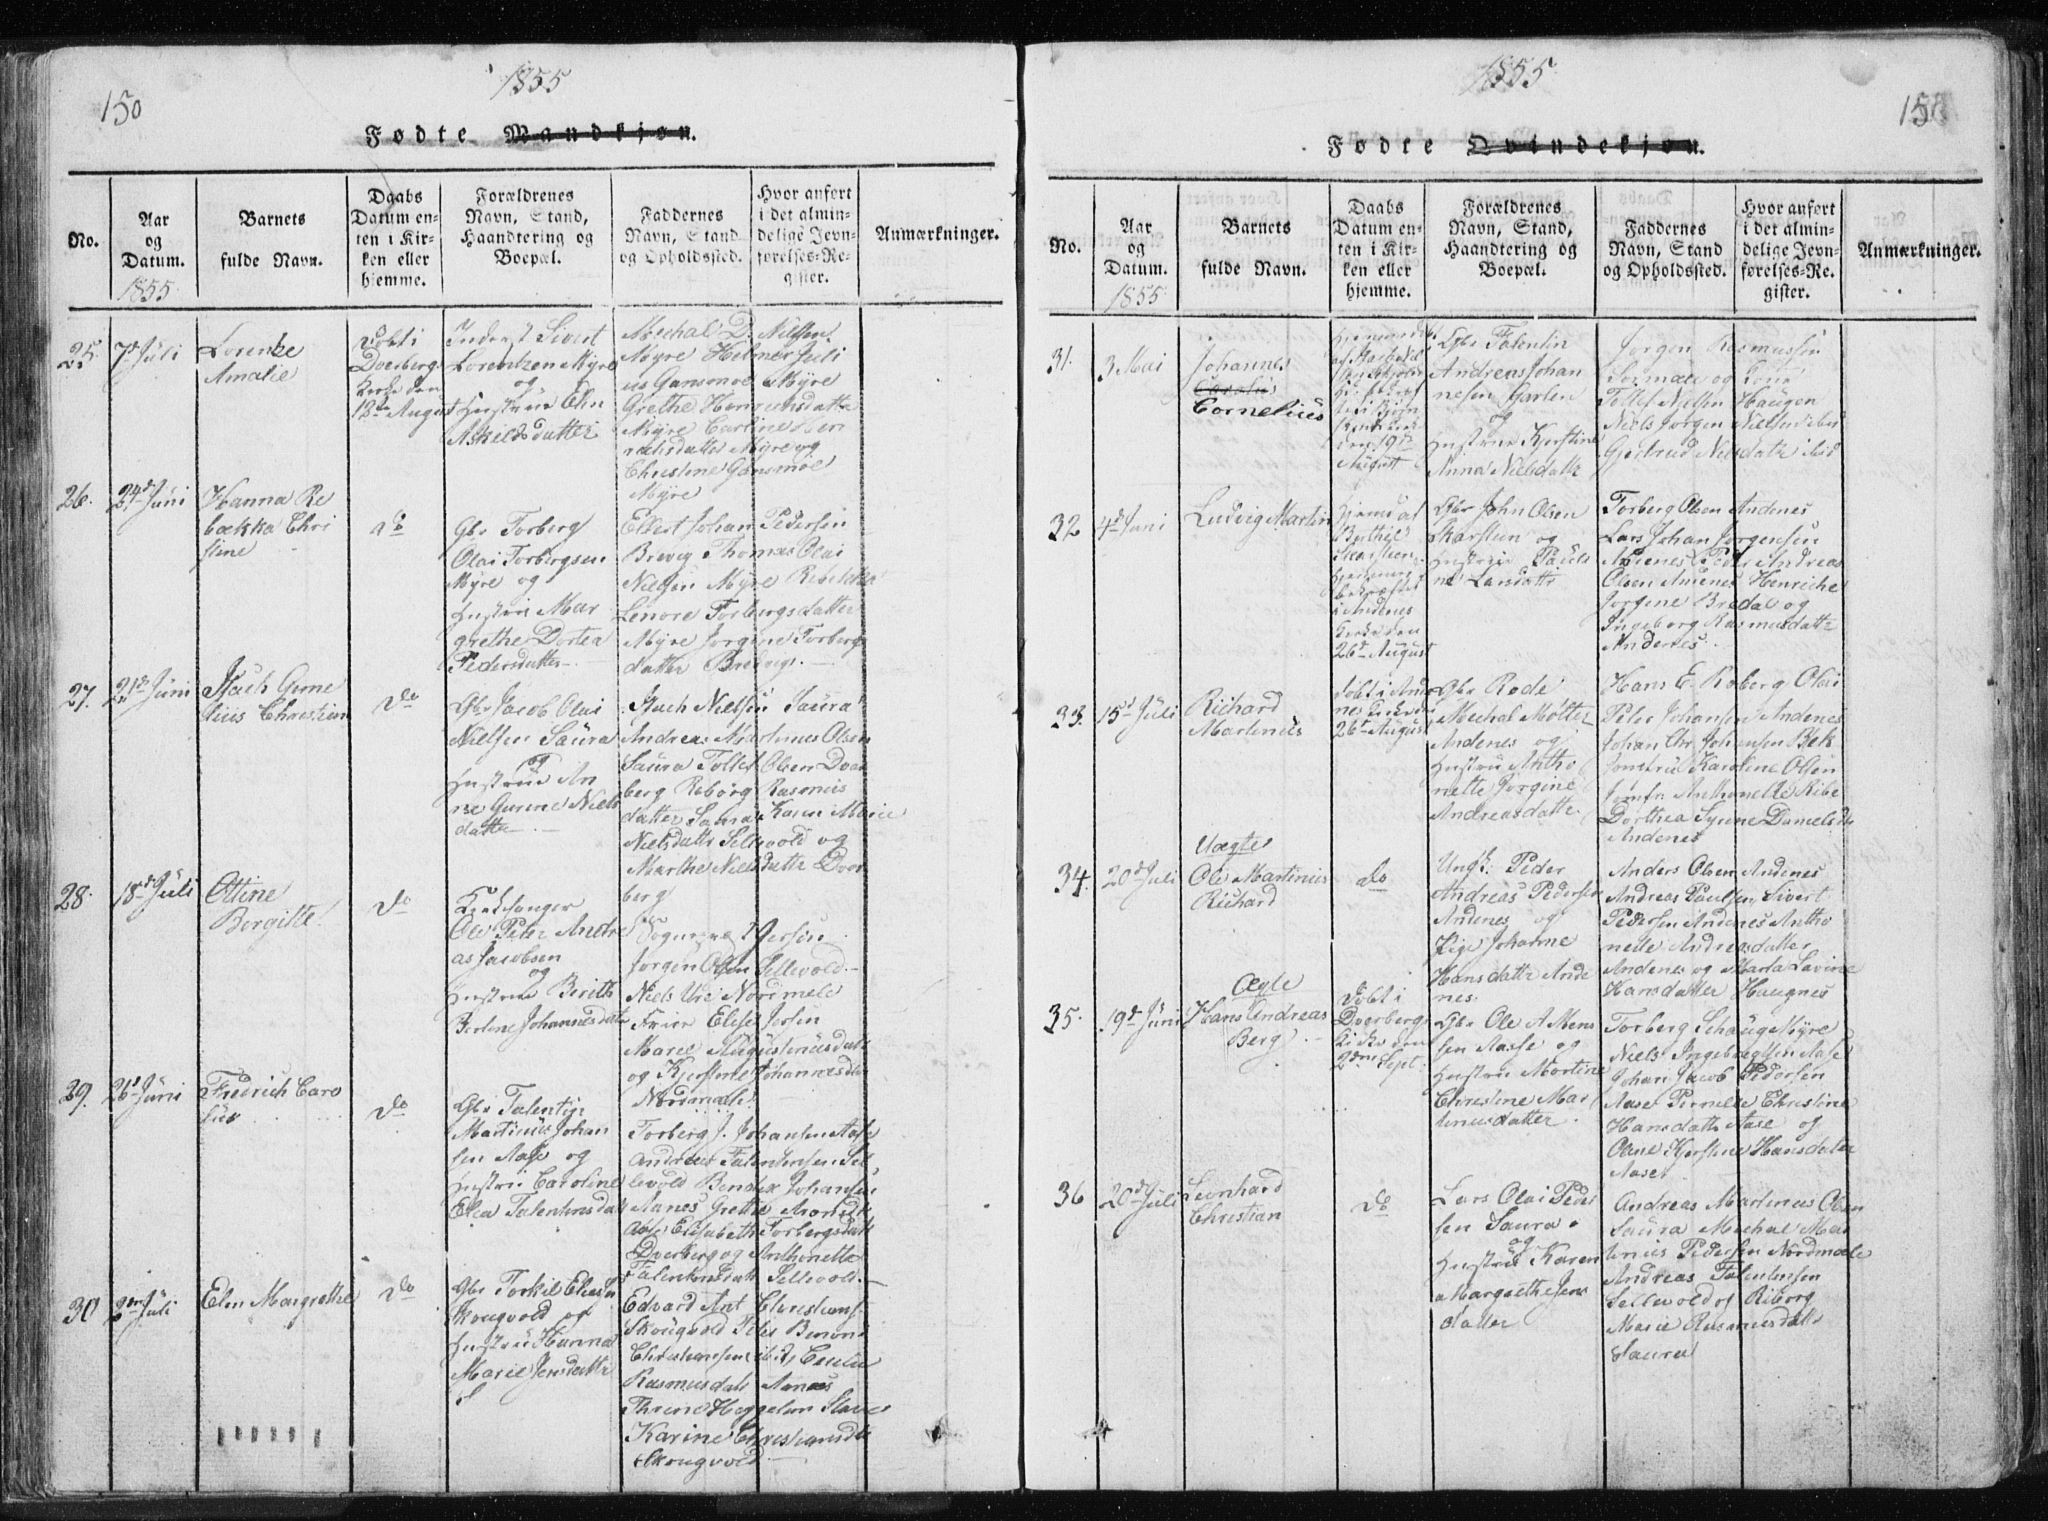 150
1855
Fødte Mandkjøn.
No.
Aar og Datum.
1855
Barnets fulde Navn.
Daabs Datum enten i Kirken eller hjemme.
Forældrenes Navn, Stand, Haandtering og Boepæl.
Faddernes Navn, Stand og Opholdssted.
Hvor anført i det almindelige Jevnførelses-Register.
Anmærkninger.
25.
7d Juli
Lorentze
Amalie
Döbt i
Dverberg
Kirke den
12te August
Inderst Sivert
Lorentzen Myre
og
Hustrue Elen
Askeldsdatter
Mechal D. Nilsen
Myre Helmer Juli
us Gansmoe Myre
Grethe Henriksdattr
Myre Carline Hen
riksdatter Myre og
Christine Gansmoe
Myre
26.
24d Juni
Hanna Re
bækka Chri
stine
do
Gbr Torberg
Olai Torbergsen
Myre og
Hustrue Mar
grethe Dortea
Pedersdatter
Ellert Johan Pedersen
Brevig Thomas Olai
Nielsen Myre Rebekka
Lenore Torbergsdatter
Myre Jorgine Torbergs
datter Brevig.
27.
21de Juni
Isach Corne
lius Christian
do
Gbr Jacob Olai
Nielsen Saura
og
Hustrue An
ne Gurine Niels
datter
Isach Nielsen Saura
Andreas Martinus Olsen
Saura Tollef Olsen Dver
berg Reborg Rasmus
datter Saura Karen Marie
Nielsdattr Sellevold og
Marthe Nielsdattr Dver
berg
28.
18d Juli
Ottine
Bergitte
do
Kirkesanger
Ole Peter Andre
as Jacobsen
og
Hustrue Berith
Berline Johannesdattr
Jorgen Olsen Sellevold
Niels Urei Nordmele
Fruer Elise Jersin
Maret Augustinusdattr
og Kjerstine Johannesdtr
Nordmele
29.
26d Juni
Fredrich Caro
lius
do
Gbr Talentin
Martinus Johan
sen Aase og
Hustrue Caroline
Elea Talentinsdattr
Torberg J. Johansen Aase
Andreas Talentinsen Sel
levold Bendix Johansen
Aanes Grethe
Aase Elisabeth Torbergsdattr
Dverberg og Anthonette
Talentinsdattr Sellevold.
30
2den Juli
Elen Margrethe
do
Gbr Torkil Eliesen
Skougvold og
Hustrue Hanna
Marie Jensdattr
Edvard Ant Christians
Skougvold Peder Benoni
Christiansen ibid,
Rasmusdatr Aanæs
Thrine Heggelun Slaves
Karine Christiansdtr
Skougvold
1855
151
Fødte Qvindekjøn.
No.
Aar og Datum.
1855
Barnets fulde Navn.
Daabs Datum enten i Kirken eller hjemme.
Forældrenes Navn, Stand, Haandtering og Boepæl.
Faddernes Navn, Stand og Opholdssted.
Hvor anført i det almindelige Jevnførelses-Register.
Anmærkninger.
31.
3 Mai
Johannes
Carolius
Cornelius
den 19de
August
Gbr Talentin
Andreas Johan
nesen Garten
og
Hustrue Kjerstine
Anna Nielsdattr
Jorgen Rasmussen
og Kone
Tollef Nielsen Haugen
Niels Jorgen Nielsen ibid
Gjertrud Nielsdattr ibid
32
4d Juni
Ludvig Martin
Hjemd af
Berthel
Skarstein
bekræftet
i Andenes
Kirke den
26d August
Gbr John Olsen
Skarstein og
Hustrue Pauli
ne Larsdattr
Torberg Olsen Andenes
Lars Johan Jorgensen
Andenes Peder Andreas
Olsen Andenes Henriche
Jorgine Bredal og
Ingeborg Rasmusdattr
Andenes.
33.
15d Juli
Richard
Martinus
Döbt i Ande
nes Kirke den
26d August
Gbr Rode
Mechal Møller
Andenes og
Hustrue Antho
nette Jorgine
Andreasdattr
Hans E. Roberg Olai
Peter Johansen Andenes
Johan Chr. Johansen Bek
Jomfru Karoline Olsen
Jomfr Anthonette Ribe
Dorthea Synne Danielsdtr
Andenes
34.
20d Juli
Uægte
Ole Martinius
Richard
do
Ungk: Peder
Andreas Pedersen
Andenes og
Pige Johanne
Hansdattr Ande
nes.
Anders Olsen Andenes
Andreas Paulsen, Sivert
Pedersen Andenes Antho
nette Andreasdatter
Andenes og Marta Lavine
Hansdatter Haugnes
35.
19d Juni
Ægte
Hans Andreas
Berg
Döbt i
Dverberg
Kirke den
2den Sept:
Gbr Ole A Mens
sen Aasse og
Hustrue Martine
Christine Mar
tinusdatter
Torberg Schaug Myre
Niels Ingebrigtsen Aase
Johan Jacob Pedersen
Aase Pernelle Christine
Hansdattr Aase og
Oline Kjerstine Hansdatter
Aase
36
20d Juli
Leonhard
Christian
do
Lars Olai Peder
sen Saura
og
Hustrue Karen
Margrethe Jens
datter
Andreas Martinus Olsen
Saura Mechal Mar
tinus Pedersen Nordmæle
Andreas Talentinsen
Sellevold og Riborg
Marie Rasmusdattr
Saura